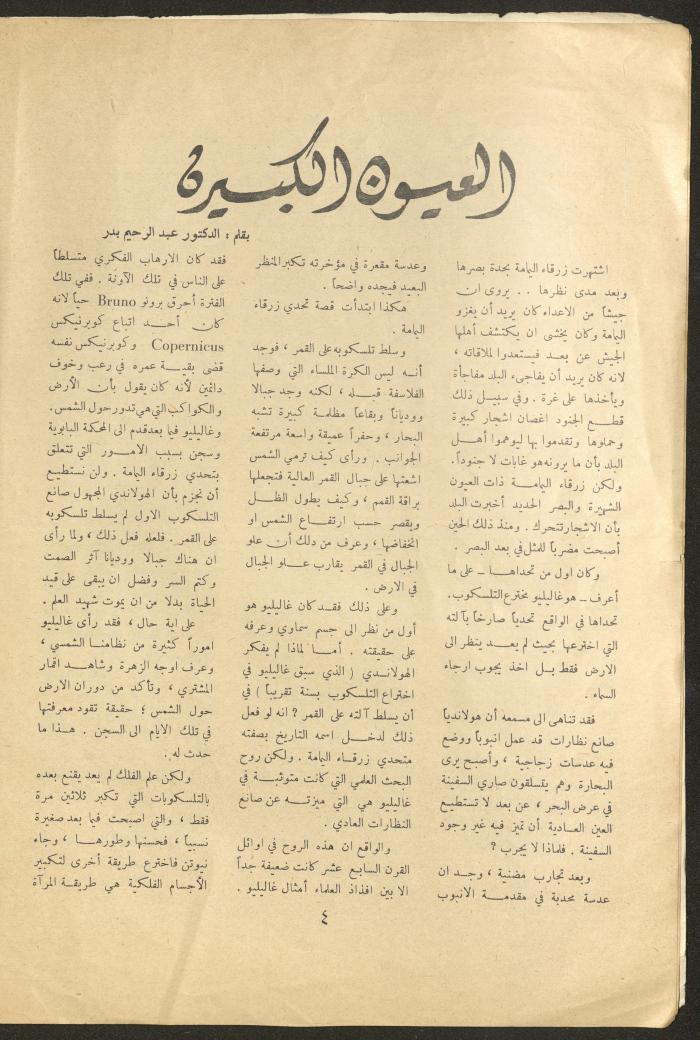 العيون الكبيرة
بقلم : الدكتور عبد الرحيم بدر
اشتهرت زرقاء اليمامة بحدة بصرها
وبعد مدى نظرها . . يروى ان
جيشاً من الاعداء كان يريد أن يغزو
اليمامة وكان يخشى ان يكتشف أهلها
الجيش عن بعد فيستعدوا لملاقاته ،
لانه كان يريد أن يفاجىء البلد مفاجأة
ويأخذها على غرة . وفي سبيل ذلك
قطع الجنود اغصان اشجار كبيرة
وحملوها وتقدموا بها ليوهموا أهل
البلد بأن ما يرونه هو غابات لا جنوداً.
ولكن زرقاء اليمامة ذات العيون
الشهيرة والبصر الحديد أخبرت البلد
بأن الاشجار تتحرك . ومنذ ذلك الحين
أصبحت مضرباً للمثل في بعد البصر .
وكان اول من تحداها – على ما
أعرف – هو غاليليو مخترع التلسكوب.
تحداها في الواقع تحدياً صارخاً بآلته
التي اخترعها بحيث لم يعد ينظر الى
الارض فقط بل اخذ يجوب ارجاء
السماء .
فقد تناهى الى مسمعه أن هولاندياً
صانع نظارات قد عمل انبوباً ووضع
فيه عدسات زجاجية ، وأصبح يرى
البحارة وهم يتسلقون صاري السفينة
في عرض البحر ، عن بعد لا تستطيع
العين العادية أن تميز فيه غير وجود
السفينة . فلماذا لا يجرب ؟
وبعد تجارب مضنية ، وجد ان
عدسة محدبة في مقدمة الانبوب
وعدسة مقعرة في مؤخرته تكبر المنظر
البعيد فيجده واضحاً .
هكذا ابتدأت قصة تحدي زرقاء
اليمامة .
وسلط تلسكوبه على القمر ، فوجد
أنه ليس الكرة الملساء التي وصفها
الفلاسفة قبله ، لكنه وجد جبالا
وودياناً وبقاعاً مظلمة كبيرة تشبه
البحار ، وحفراً عميقة واسعة مرتفعة
الجوانب . ورأى كيف ترمي الشمس
اشعتها على جبال القمر العالية فتجعلها
براقة القمم ، وكيف يطول الظل
ويقصر حسب ارتفاع الشمس او
انخفاضها ، وعرف من ذلك أن علو
الجبال في القمر يقارب علو الجبال
في الارض .
وعلى ذلك فقد كان غاليليو هو
أول من نظر الى جسم سماوي وعرفه
على حقيقته . أما لماذا لم يفكر
الهولاندي ( الذي سبق غاليليو في
اختراع التلسكوب بسنة تقريباً ) في
أن يسلط آلته على القمر ? انه لو فعل
ذلك لدخل اسمه التاريخ بصفته
متحدي زرقاء اليمامة . ولكن روح
البحث العلمي التي كانت متوثبة في
غاليليو هي التي ميزته عن صانع
النظارات العادي .
والواقع ان هذه الروح في اوائل
القرن السابع عشر كانت ضعيفة جداً
الا بين افذاذ العلماء أمثال غاليليو .
فقد كان الارهاب الفكري متسلطاً
على الناس في تلك الآونة . ففي تلك
الفترة أحرق برونو Bruno حياً لانه
كان أحد اتباع كوبرنيكس
Copernicus وكوبرنيكس نفسه
قضى بقية عمره في رعب وخوف
دائمين لأنه كان يقول بأن الأرض
والكواكب التي هي تدور حول الشمس.
وغاليليو فيما بعد قدم الى المحكمة البابوية
وسجن بسبب الامور التي تتعلق
بتحدي زرقاء اليمامة . ولن نستطيع
أن نجزم بأن الهولاندي المجهول صانع
التلسكوب الاول لم يسلط تلسكوبه
على القمر . فلعله فعل ذلك ، ولما رأى
ان هناك جبالا ووديانا آثر الصمت
وكتم السر وفضل ان يبقى على قيد
الحياة بدلا من ان يموت شهيد العلم .
على اية حال ، فقد رأى غاليليو
اموراً كثيرة من نظامنا الشمسي ،
وعرف اوجه الزهرة وشاهد اقمار
المشتري ، وتأكد من دوران الارض
حول الشمس ؛ حقيقة تقود معرفتها
في تلك الايام الى السجن . هذا ما
حدث له .
ولكن علم الفلك لم يعد يقنع بعده
بالتلسكوبات التي تكبر ثلاثين مرة
فقط ، والتي اصبحت فيما بعد صغيرة
نسبياً ، فحسنها وطورها ، وجاء
نيوتن فاخترع طريقة أخرى لتكبير
الأجسام الفلكية هي طريقة المرآة
٤